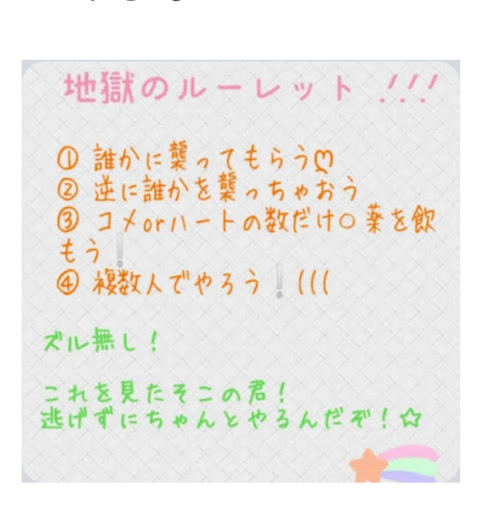 地獄のルーレット !!!
① 誰かに襲ってもらうღ
② 逆に誰かを襲っちゃおう
③ コメorハートの数だけ○薬を飲
もう❕
④ 複数人でやろう❕(((
ズル無し!
これを見たそこの君!
逃げずにちゃんとやるんだぞ!☆